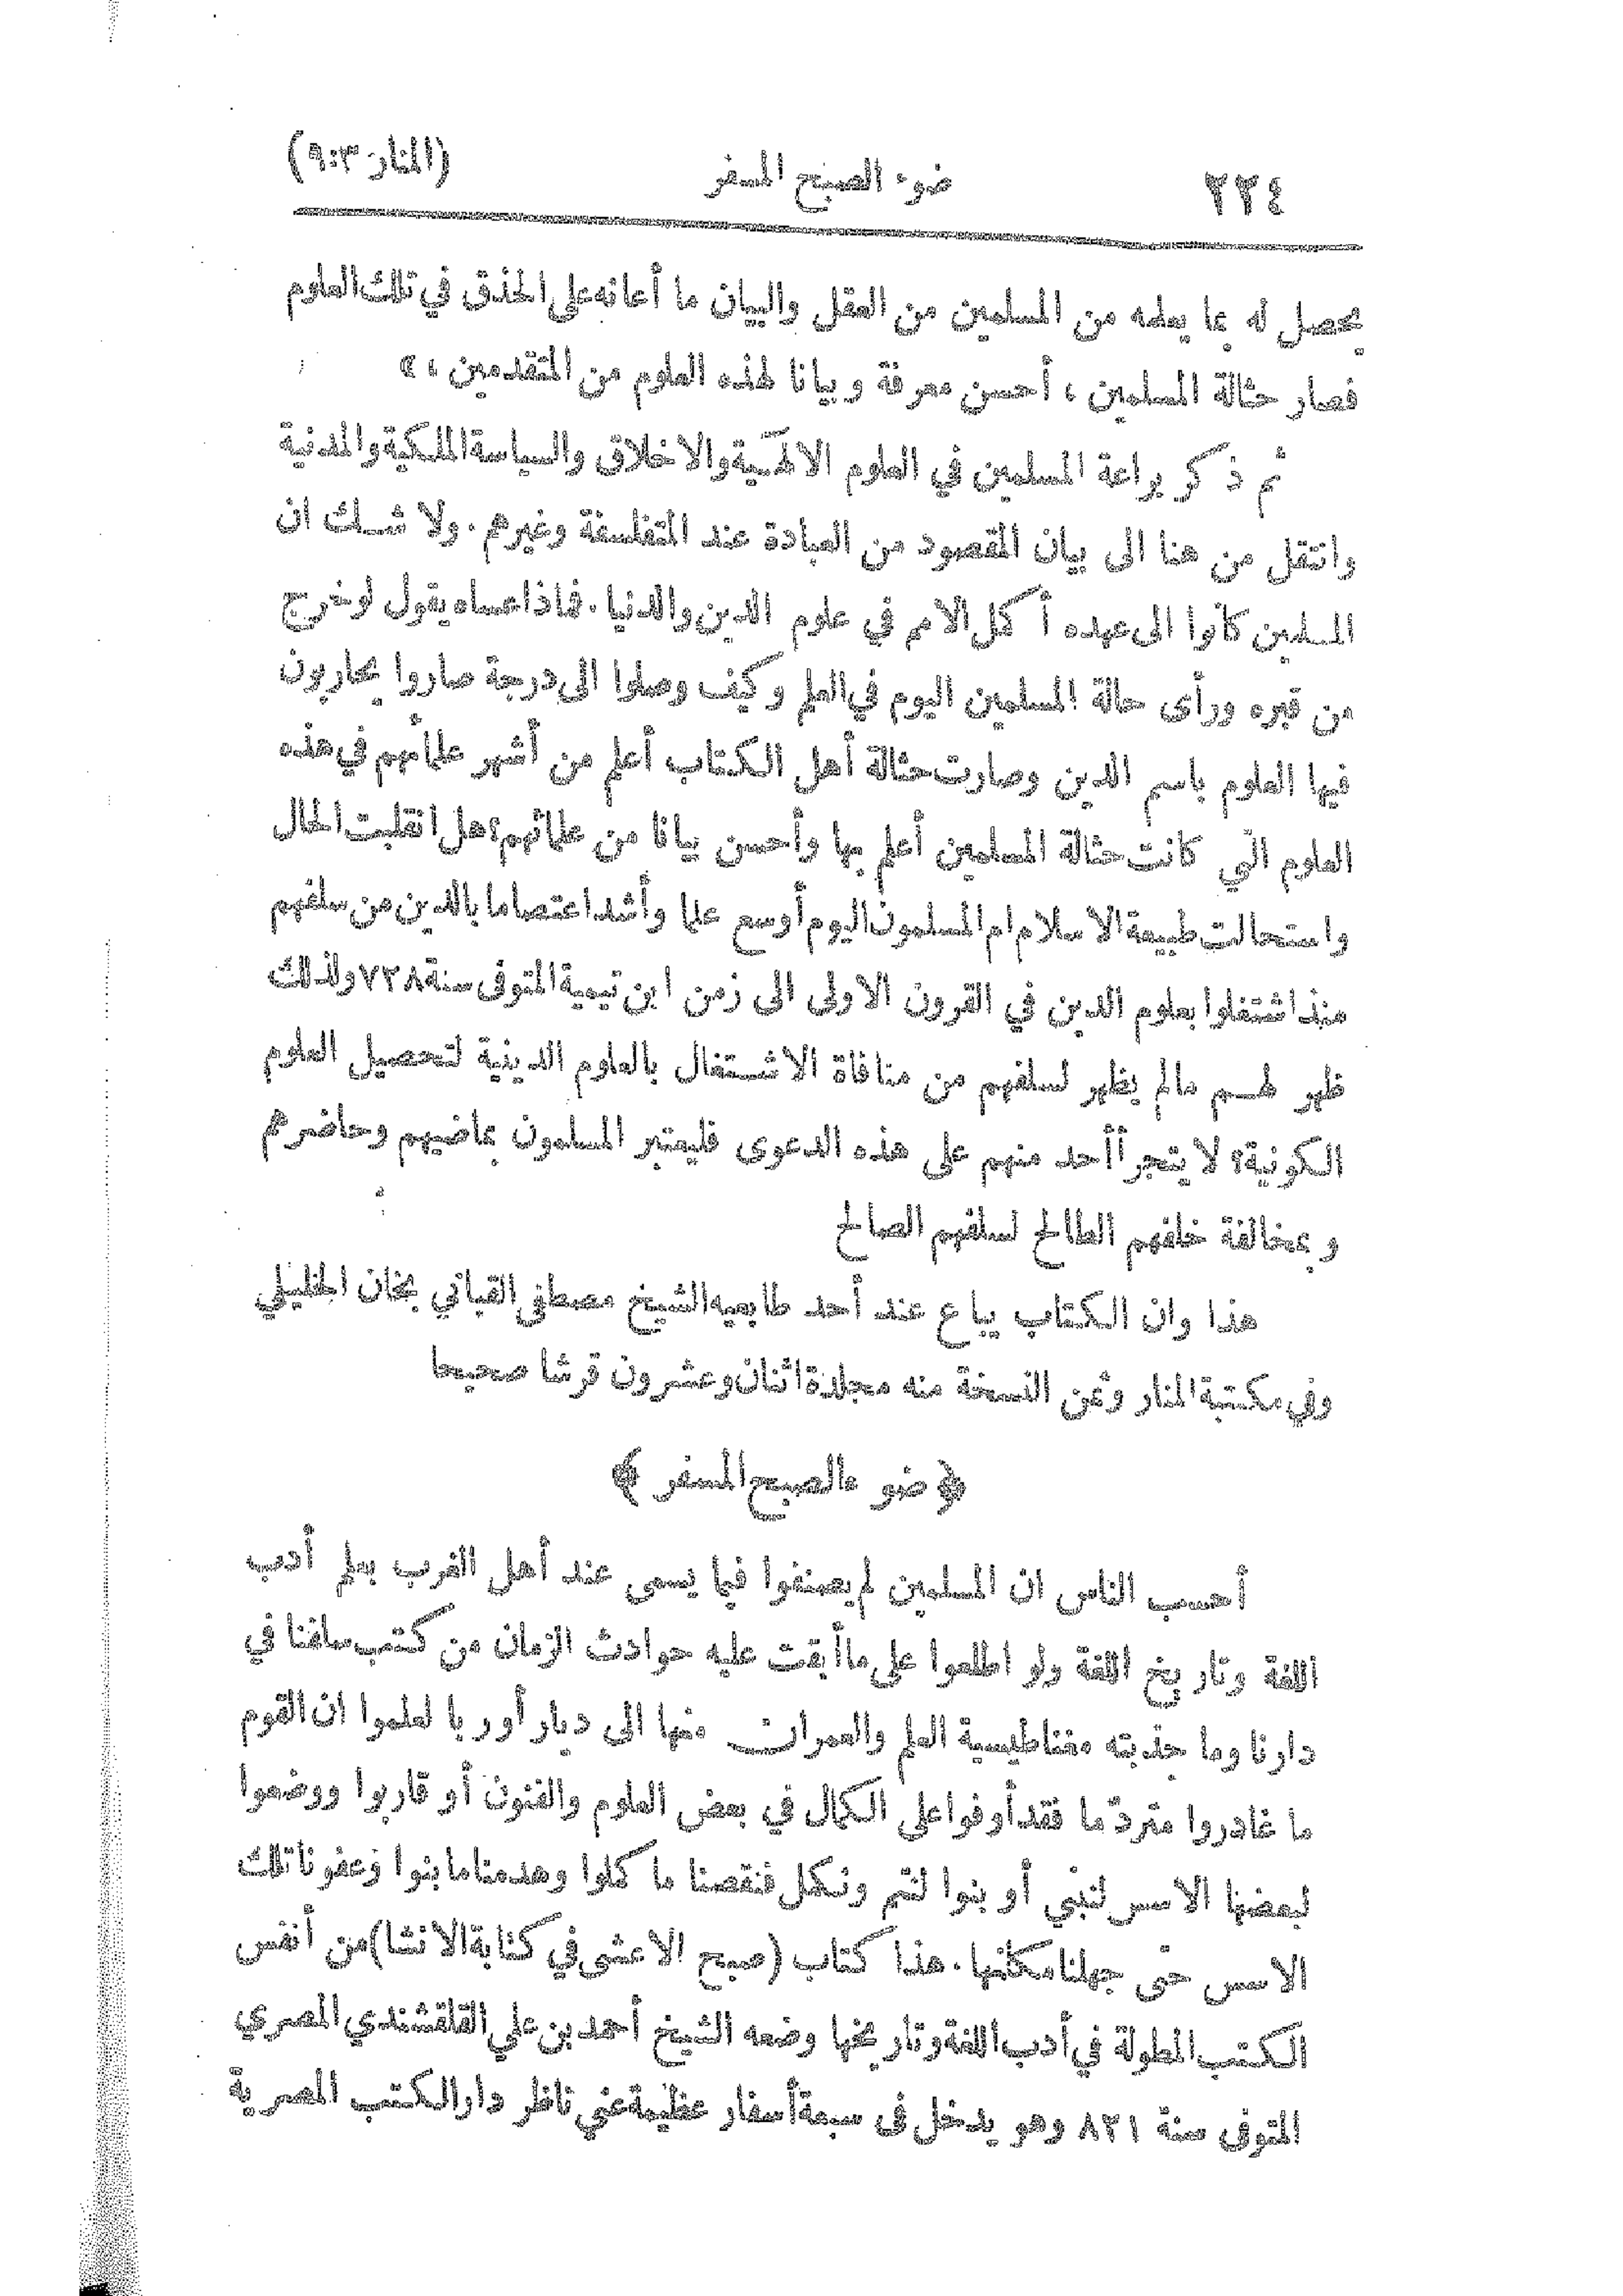 ٢٣٤ ضوء الصبح المسفر (المنار ٩:٣)
يحصل له بما يعلمه من المسلمين من العقل والبيان ما أعانه على الحذق في تلك العلوم
فصار حثالة المسلمين ، أحسن معرفة وبيانا لهذه العلوم من المتقدمين ، »
ثم ذكر براعة المسلمين في العلوم الالهية والاخلاق والسياسة الملكية والمدنية
وانتقل من هنا الى بيان المقصود من العبادة عند المتفلسفة وغيرهم . ولا شك ان
المسلمين كانوا الى عهده أكمل الامم في علوم الدين والدنيا . فماذا عساه يقول لو خرج
من قبره ورأى حالة المسلمين اليوم في العلم وكيف وصلوا الى درجة صاروا يحاربون
فيها العلوم باسم الدين وصارت حثالة أهل الكتاب أعلم من أشهر علمائهم في هذه
العلوم التي كانت حثالة المسلمين أعلم بها وأحسن بيانا من علمائهم؟ هل انقلبت الحال
واستحالت طبيعة الاسلام ام المسلمون اليوم أوسع علما وأشد اعتصاما بالدين من سلفهم
منذ اشتغلوا بعلوم الدين في القرون الاولى الى زمن ابن تيمية المتوفى سنة ٧٢٨ ولذلك
ظهر لهم مالم يظهر لسلفهم من منافاة الاشتغال بالعلوم الدينية لتحصيل العلوم
الكونية؟ لا يتجرأ أحد منهم على هذه الدعوى فليعتبر المسلمون بماضيهم وحاضرهم
وبمخالفة خلفهم الطالح لسلفهم الصالح
هذا وان الكتاب يباع عند أحد طابعيه الشيخ مصطفى القباني بخان الخليلي
وفي مكتبة المنار وثمن النسخة منه مجلدة اثنان وعشرون قرشا صحيحا
﴿ ضوء الصبح المسفر ﴾
أحسب الناس ان المسلمين لم يصنفوا فيما يسمى عند أهل الغرب بعلم أدب
اللغة وتاريخ اللغة ولو اطلعوا على ما أبقت عليه حوادث الزمان من كتب سلفنا في
دارنا وما جذبته مغناطيسية العلم والعمران منها الى ديار أوربا لعلموا ان القوم
ما غادروا متردّما فقد أوفوا على الكمال في بعض العلوم والفنون أو قاربوا ووضعوا
لبعضها الاسس لنبني أو بنوا لنتم ونكمل فنقصنا ما كملوا وهدمنا ما بنوا وعفونا تلك
الاسس حتى جهلنا مكانها . هذا كتاب (صبح الاعشى في كتابة الانشا) من أنفس
الكتب المطولة في أدب اللغة وتاريخها وضعه الشيخ أحمد بن علي القلقشندي المصري
المتوفى سنة ٨٢١ وهو يدخل فى سبعة أسفار عظيمة عني ناظر دار الكتب المصرية